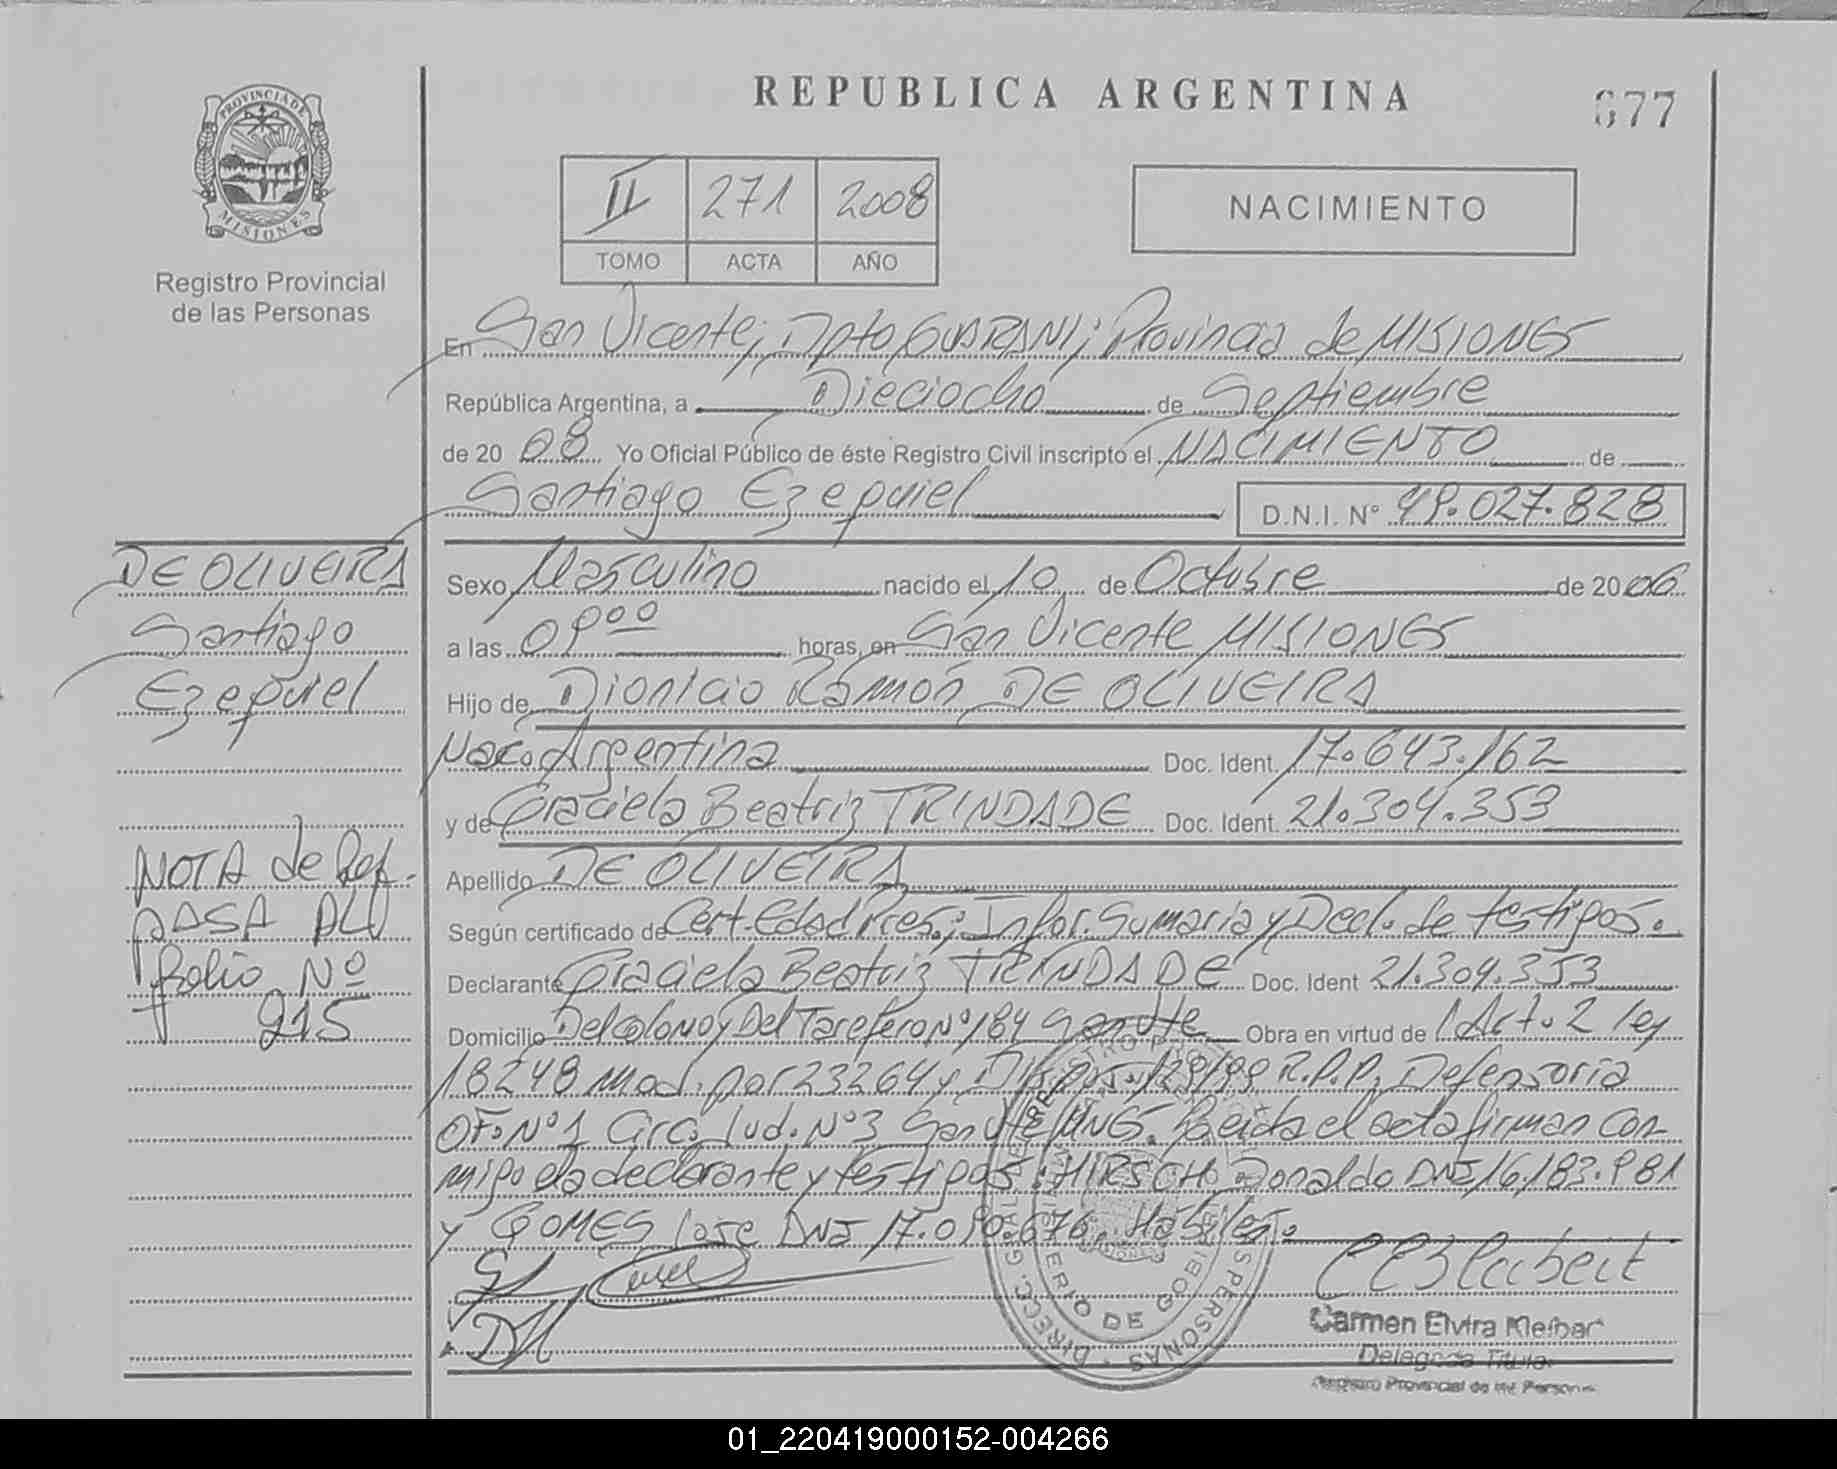 REPUBLICA ARGENTINA
677
PROVINCIA DE
MISIONES
Registro Provincial
de las Personas
II 271 2008
TOMO ACTA AÑO
NACIMIENTO
En San Vicente; Dpto GUARANI; Provincia de MISIONES
República Argentina, a Dieciocho de Septiembre
de 20 08 Yo Oficial Público de éste Registro Civil inscripto el NACIMIENTO de
Santiago Ezequiel D.N.I. Nº 49.027.828
DE OLIVEIRA
Santiago
Ezequiel
Sexo Masculino nacido el 10 de Octubre de 20 06
a las 09 00 horas, en San Vicente MISIONES
Hijo de Dionicio Ramón DE OLIVEIRA
Nac. Argentina Doc. Ident. 17.643.162
y de Graciela Beatriz TRINDADE Doc. Ident. 21.304.353
Apellido DE OLIVEIRA
NOTA de Ref.
PASA AL
folio Nº
915
Según certificado de Cert. Edad Pres.; Infor. Sumaria y Decl. de testigos.
Declarante Graciela Beatriz TRINDADE Doc. Ident 21.304.353
Domicilio Del Colono y Del Tarefero Nº 184 San Vte Obra en virtud de Art. 2 ley
18248 mod. por 23264 y Dispos. 129/99 R.P.P. Defensoria
OF. Nº 1 Circ. Jud. Nº 3 San Vte MNES. Leida el acta firman con
migo la declarante y testigos: HIRSCH Donaldo DNI 16.183.981
y GOMES Jose DNI 17.090.676. Hábiles.
Carmen Elvira
Delegada Titular
Registro Provincial de las Personas
01_220419000152-004266